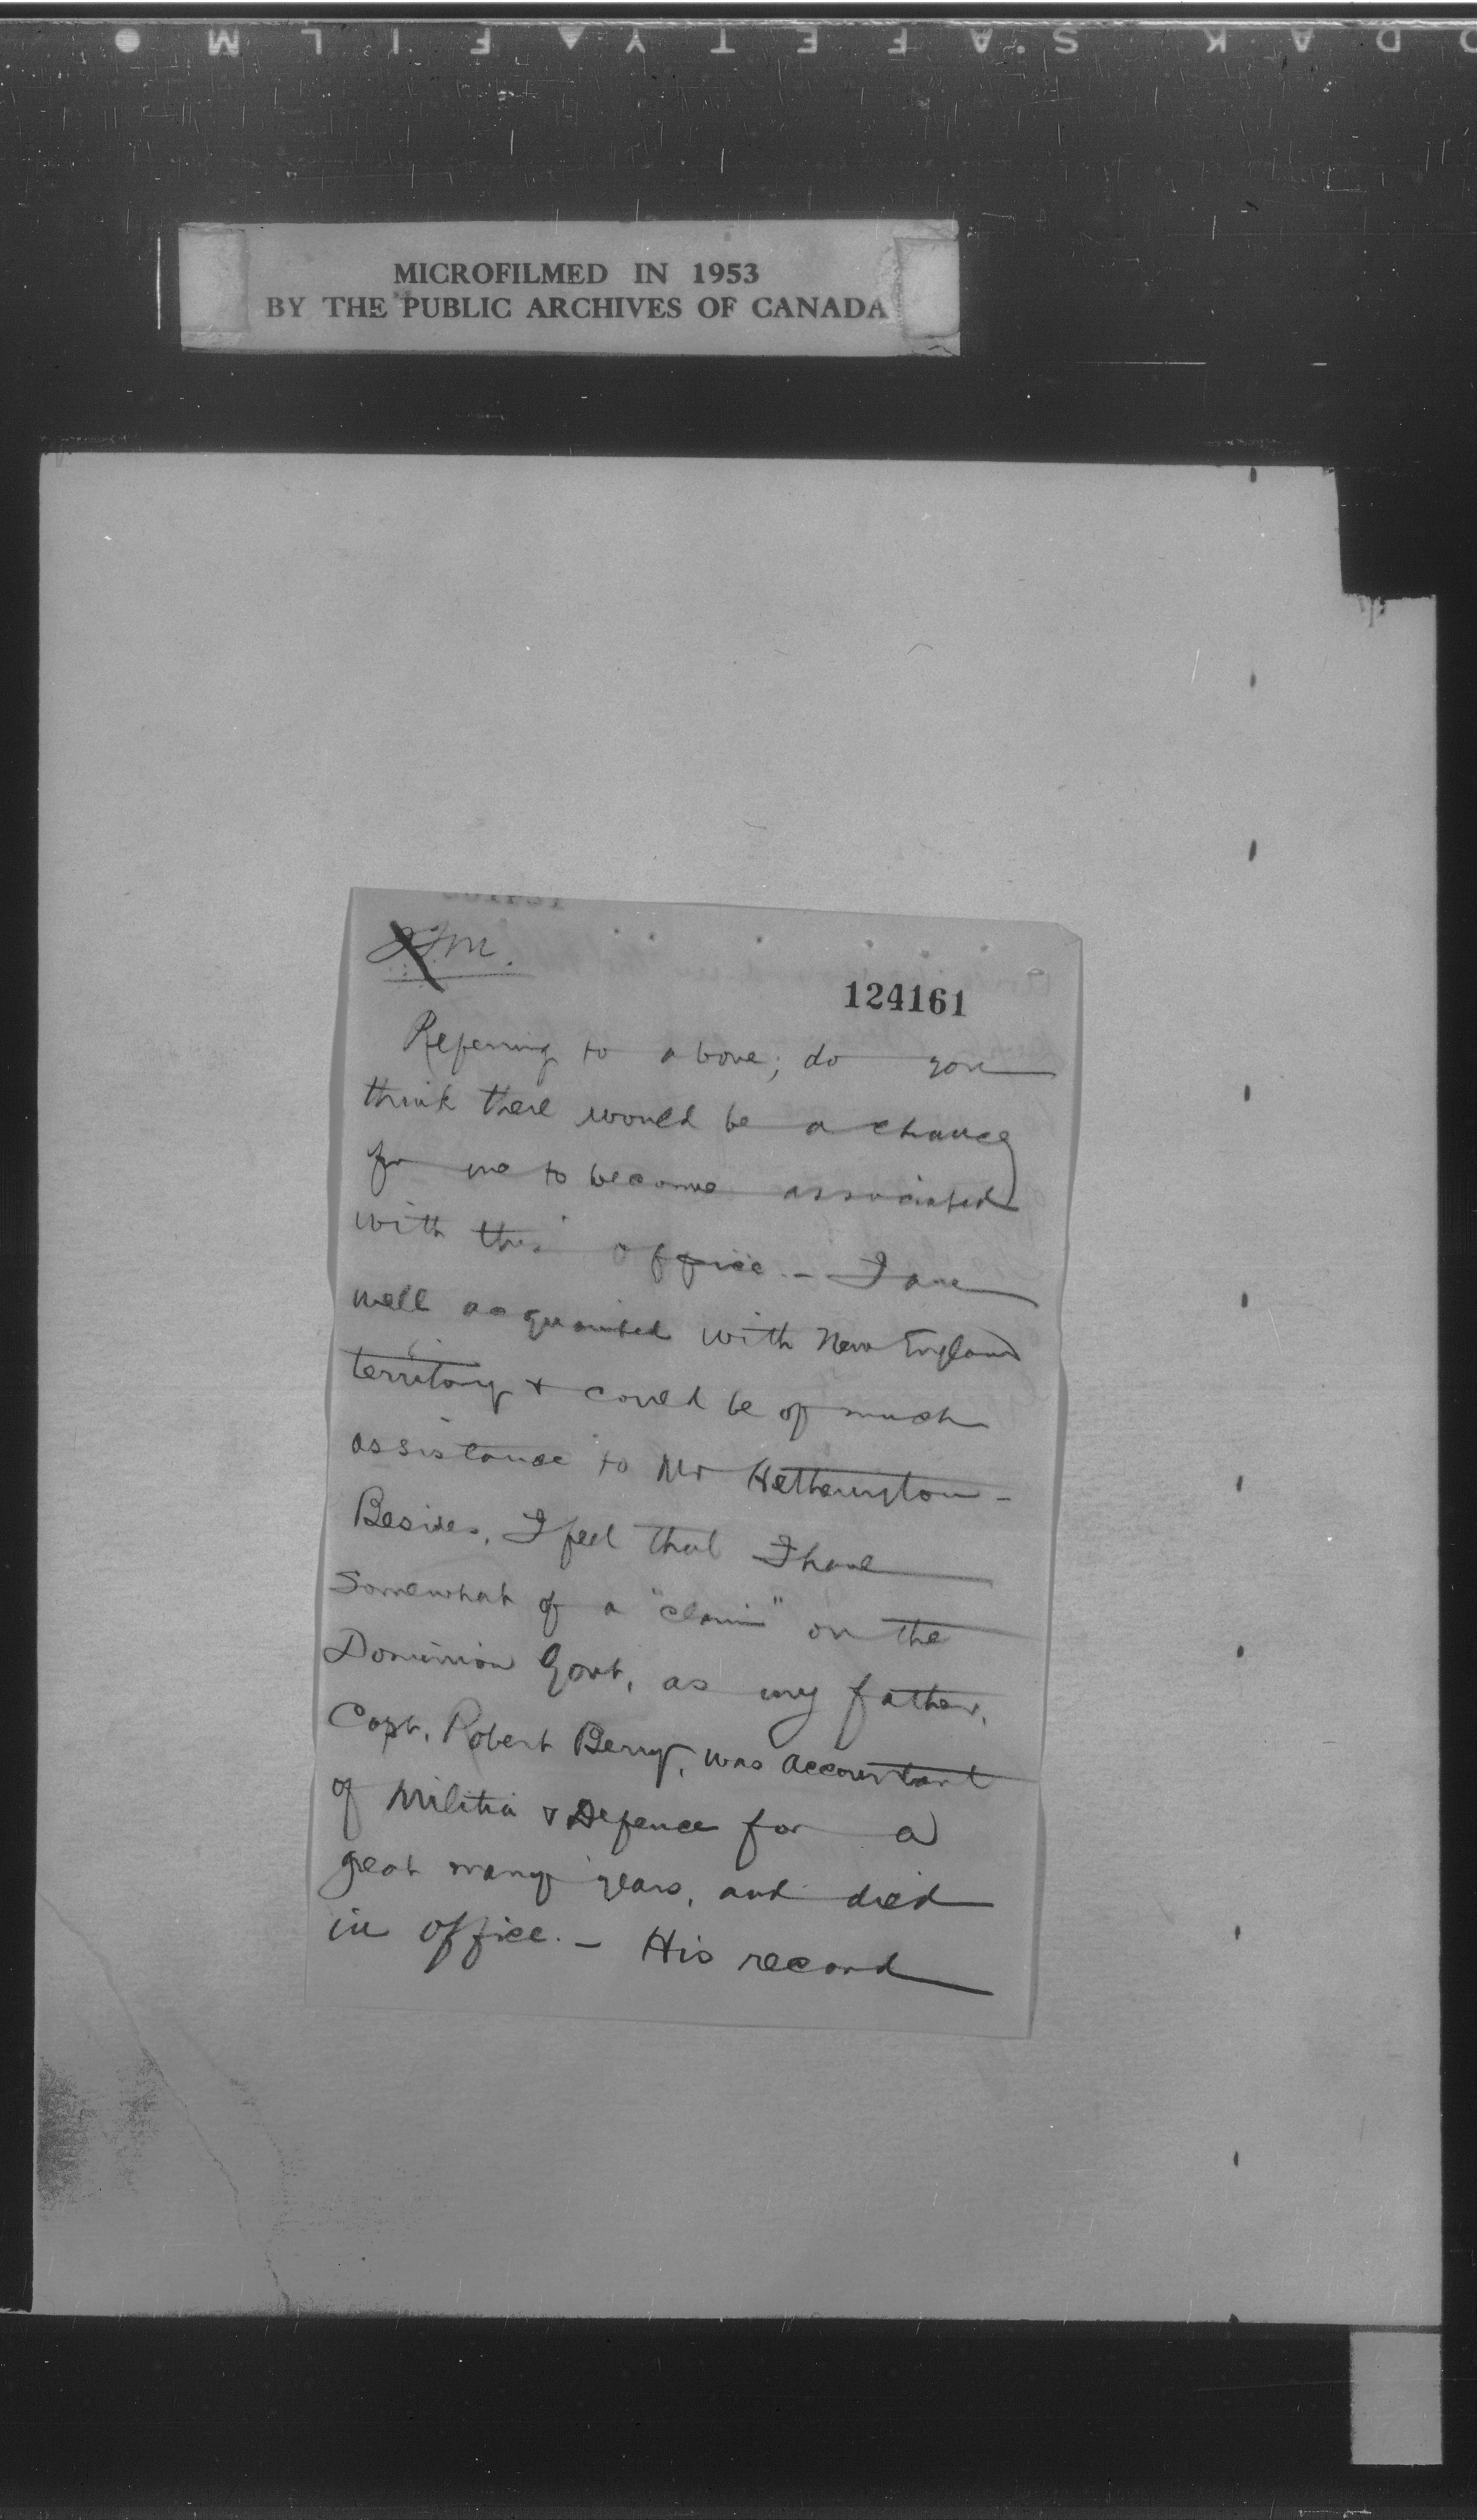 KODAK SAFETY FILM
MICROFILMED IN 1953
BY THE PUBLIC ARCHIVES OF CANADA
124161
Referring to above; do you
think there would be a chance
for me to become associated
with this office. - I am
well acquainted with New England
territory & could be of much
assistance to Mr Hetherington -
Besides, I feel that I have
somewhat of a "claim" on the
Dominion Govt, as my father,
Capt. Robert Berry, was accountant
of Militia & Defence for a
great many years, and died
in office. - His record